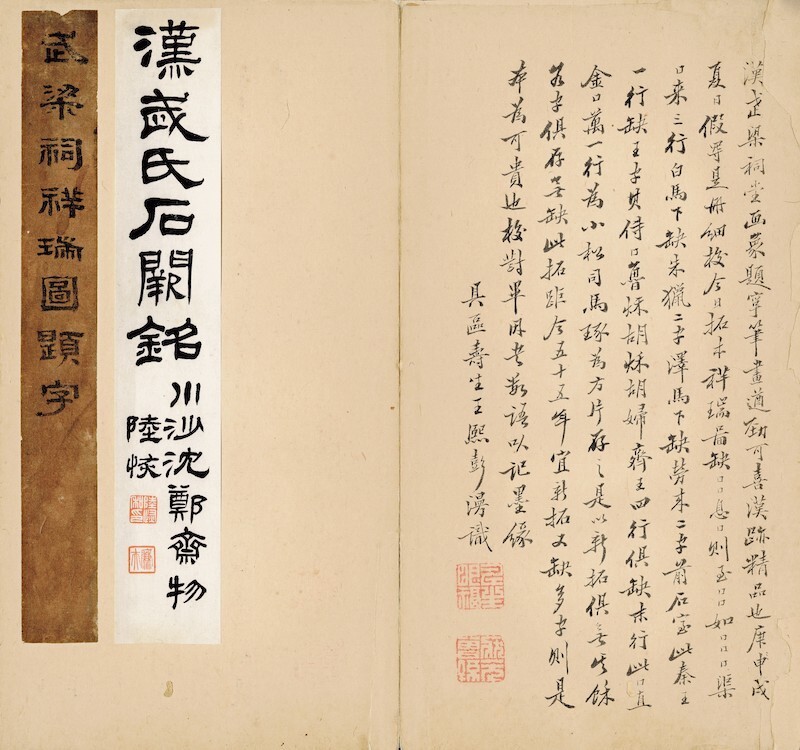 漢武梁祠堂画象題字筆畫遒勁可喜漢跡精品也庚申
夏日假是册細校今日拓本祥瑞圖缺□□息□則至□□如□□□渠
□来三行白馬下缺朱獵二字澤馬下缺勞来二字前石室此秦王
一行缺王字其侍□舊秌胡秌胡婦齊王四行俱缺末行此□直
金□萬一行為小松司馬琢為方片存之是以新拓俱無秌
字俱存無缺此拓距今五十五年宜新拓又缺多字則是
本為可貴也校對畢因書數語以記墨緣
具區壽生王熙彭漫識
漢武氏石闕銘
川沙沈鄭齋物
陸恢
武梁祠祥瑞圖題字